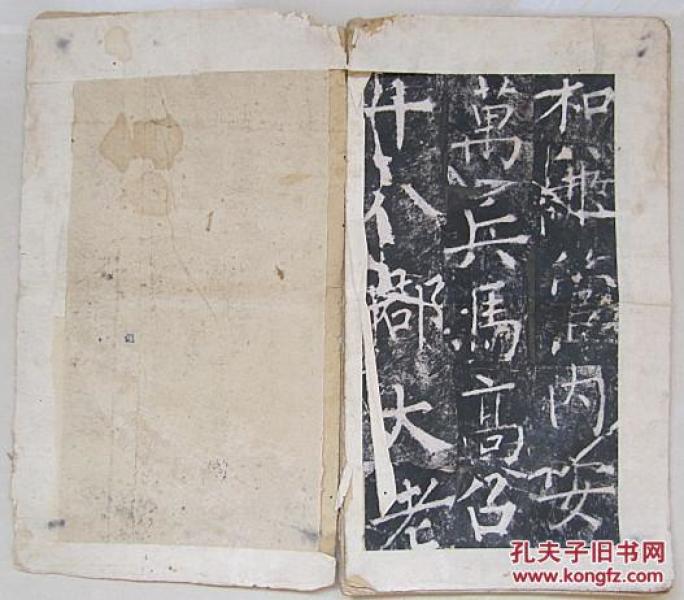 和內安
萬兵馮高
廿八大
孔夫子旧书网
www.kongfz.com